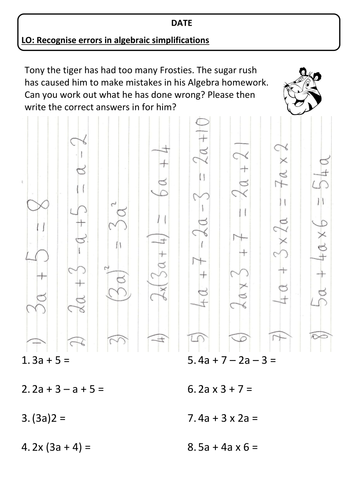 DATE
LO: Recognise errors in algebraic simplifications
Tony the tiger has had too many Frosties. The sugar rush
has caused him to make mistakes in his Algebra homework.
Can you work out what he has done wrong? Please then
write the correct answers in for him?
1) 3a + 5 = 8
2) 2a + 3 - a + 5 = a - 2
3) (3a)² = 3a²
4) 2x(3a + 4) = 6a + 4
5) 4a + 7 - 2a - 3 = 2a + 10
6) 2a x 3 + 7 = 2a + 21
7) 4a + 3 x 2a = 7a x 2
8) 5a + 4a x 6 = 54a
1. 3a + 5 =
5. 4a + 7 – 2a – 3 =
2. 2a + 3 – a + 5 =
6. 2a x 3 + 7 =
3. (3a)2 =
7. 4a + 3 x 2a =
4. 2x (3a + 4) =
8. 5a + 4a x 6 =